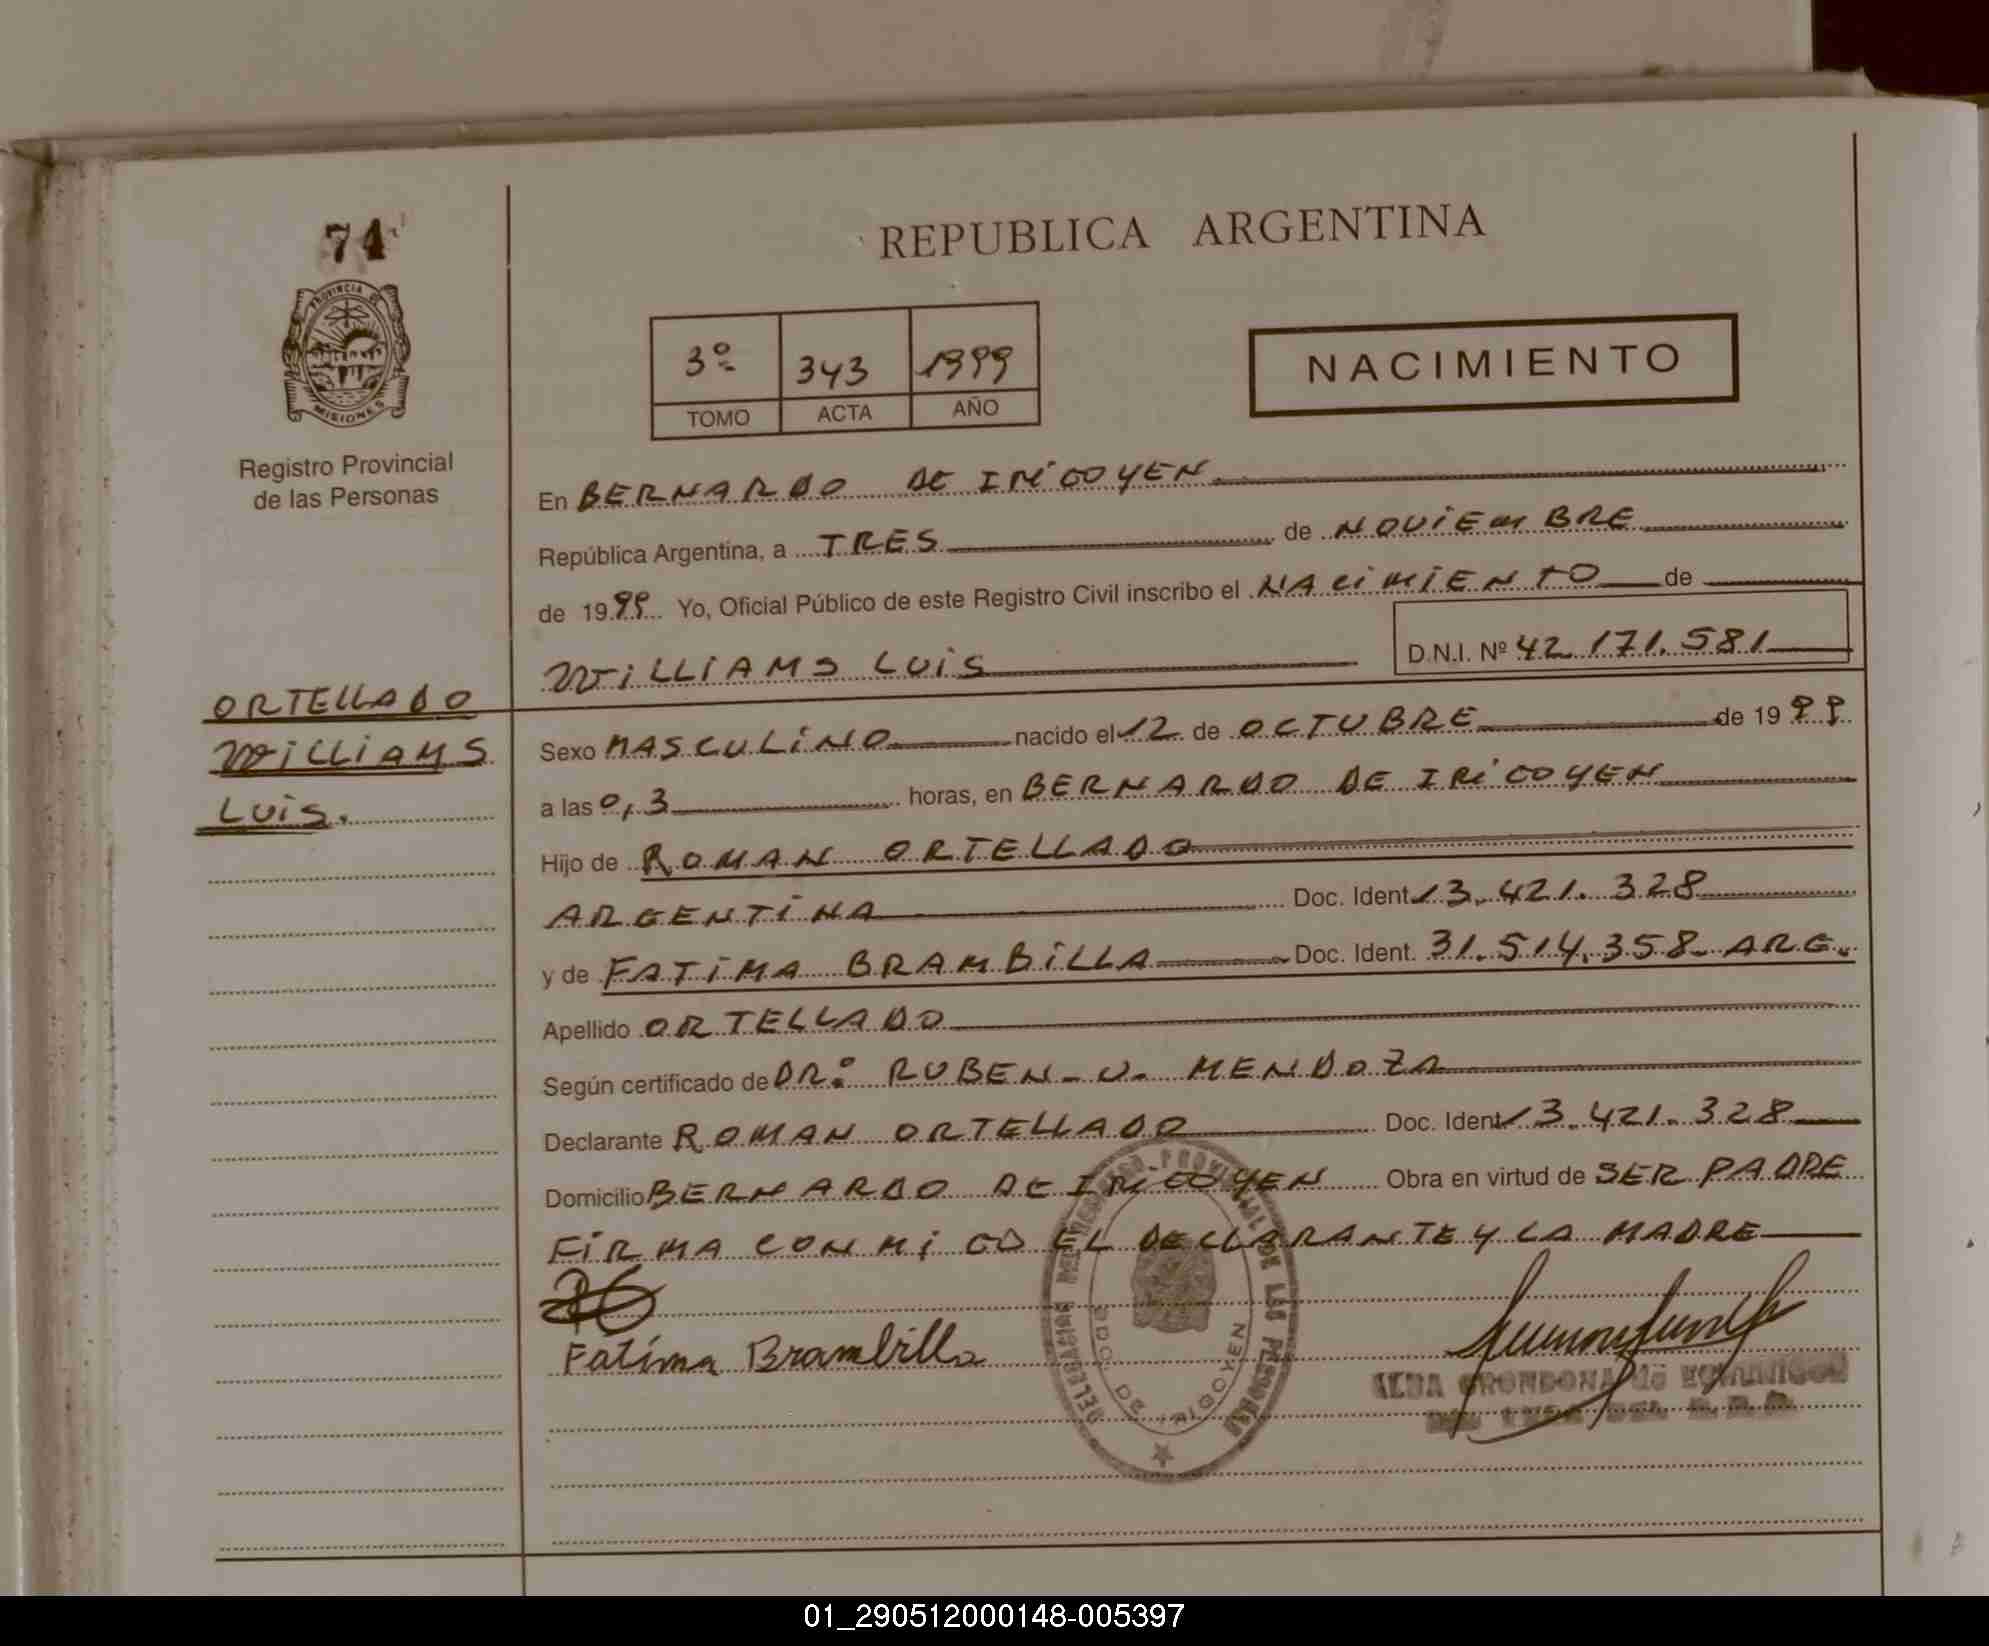 74
PROVINCIA DE
MISIONES
Registro Provincial
de las Personas
ORTELLADO
WILLIAMS
LUIS.
REPUBLICA ARGENTINA
3º 343 1999
TOMO ACTA AÑO
NACIMIENTO
En BERNARDO DE IRIGOYEN
República Argentina, a TRES de NOVIEMBRE
de 1999 Yo, Oficial Público de este Registro Civil inscribo el NACIMIENTO de
WILLIAMS LUIS D.N.I. Nº 42.171.581
Sexo MASCULINO nacido el 12 de OCTUBRE de 1999
a las 0,3 horas, en BERNARDO DE IRIGOYEN
Hijo de ROMAN ORTELLADO
ARGENTINA Doc. Ident. 13.421.328
y de FATIMA BRAMBILLA Doc. Ident. 31.514.358- ARG.
Apellido ORTELLADO
Según certificado de DR: RUBEN-U- MENDOZA
Declarante ROMAN ORTELLADO Doc. Ident. 13.421.328
Domicilio BERNARDO DE IRIGOYEN Obra en virtud de SER PADRE
FIRMA CONMIGO EL DECLARANTE Y LA MADRE
Fatima Brambilla
PROVINCIAL DE LAS PERSONAS
BDO. DE IRIGOYEN
01_290512000148-005397